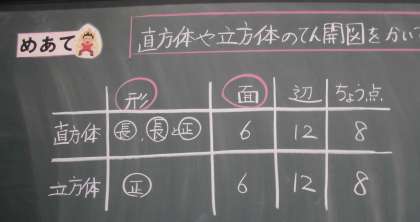 めあて
直方体や立方体のてん開図をかいて
形 面 辺 ちょう点
直方体 長、長と正 6 12 8
立方体 正 6 12 8